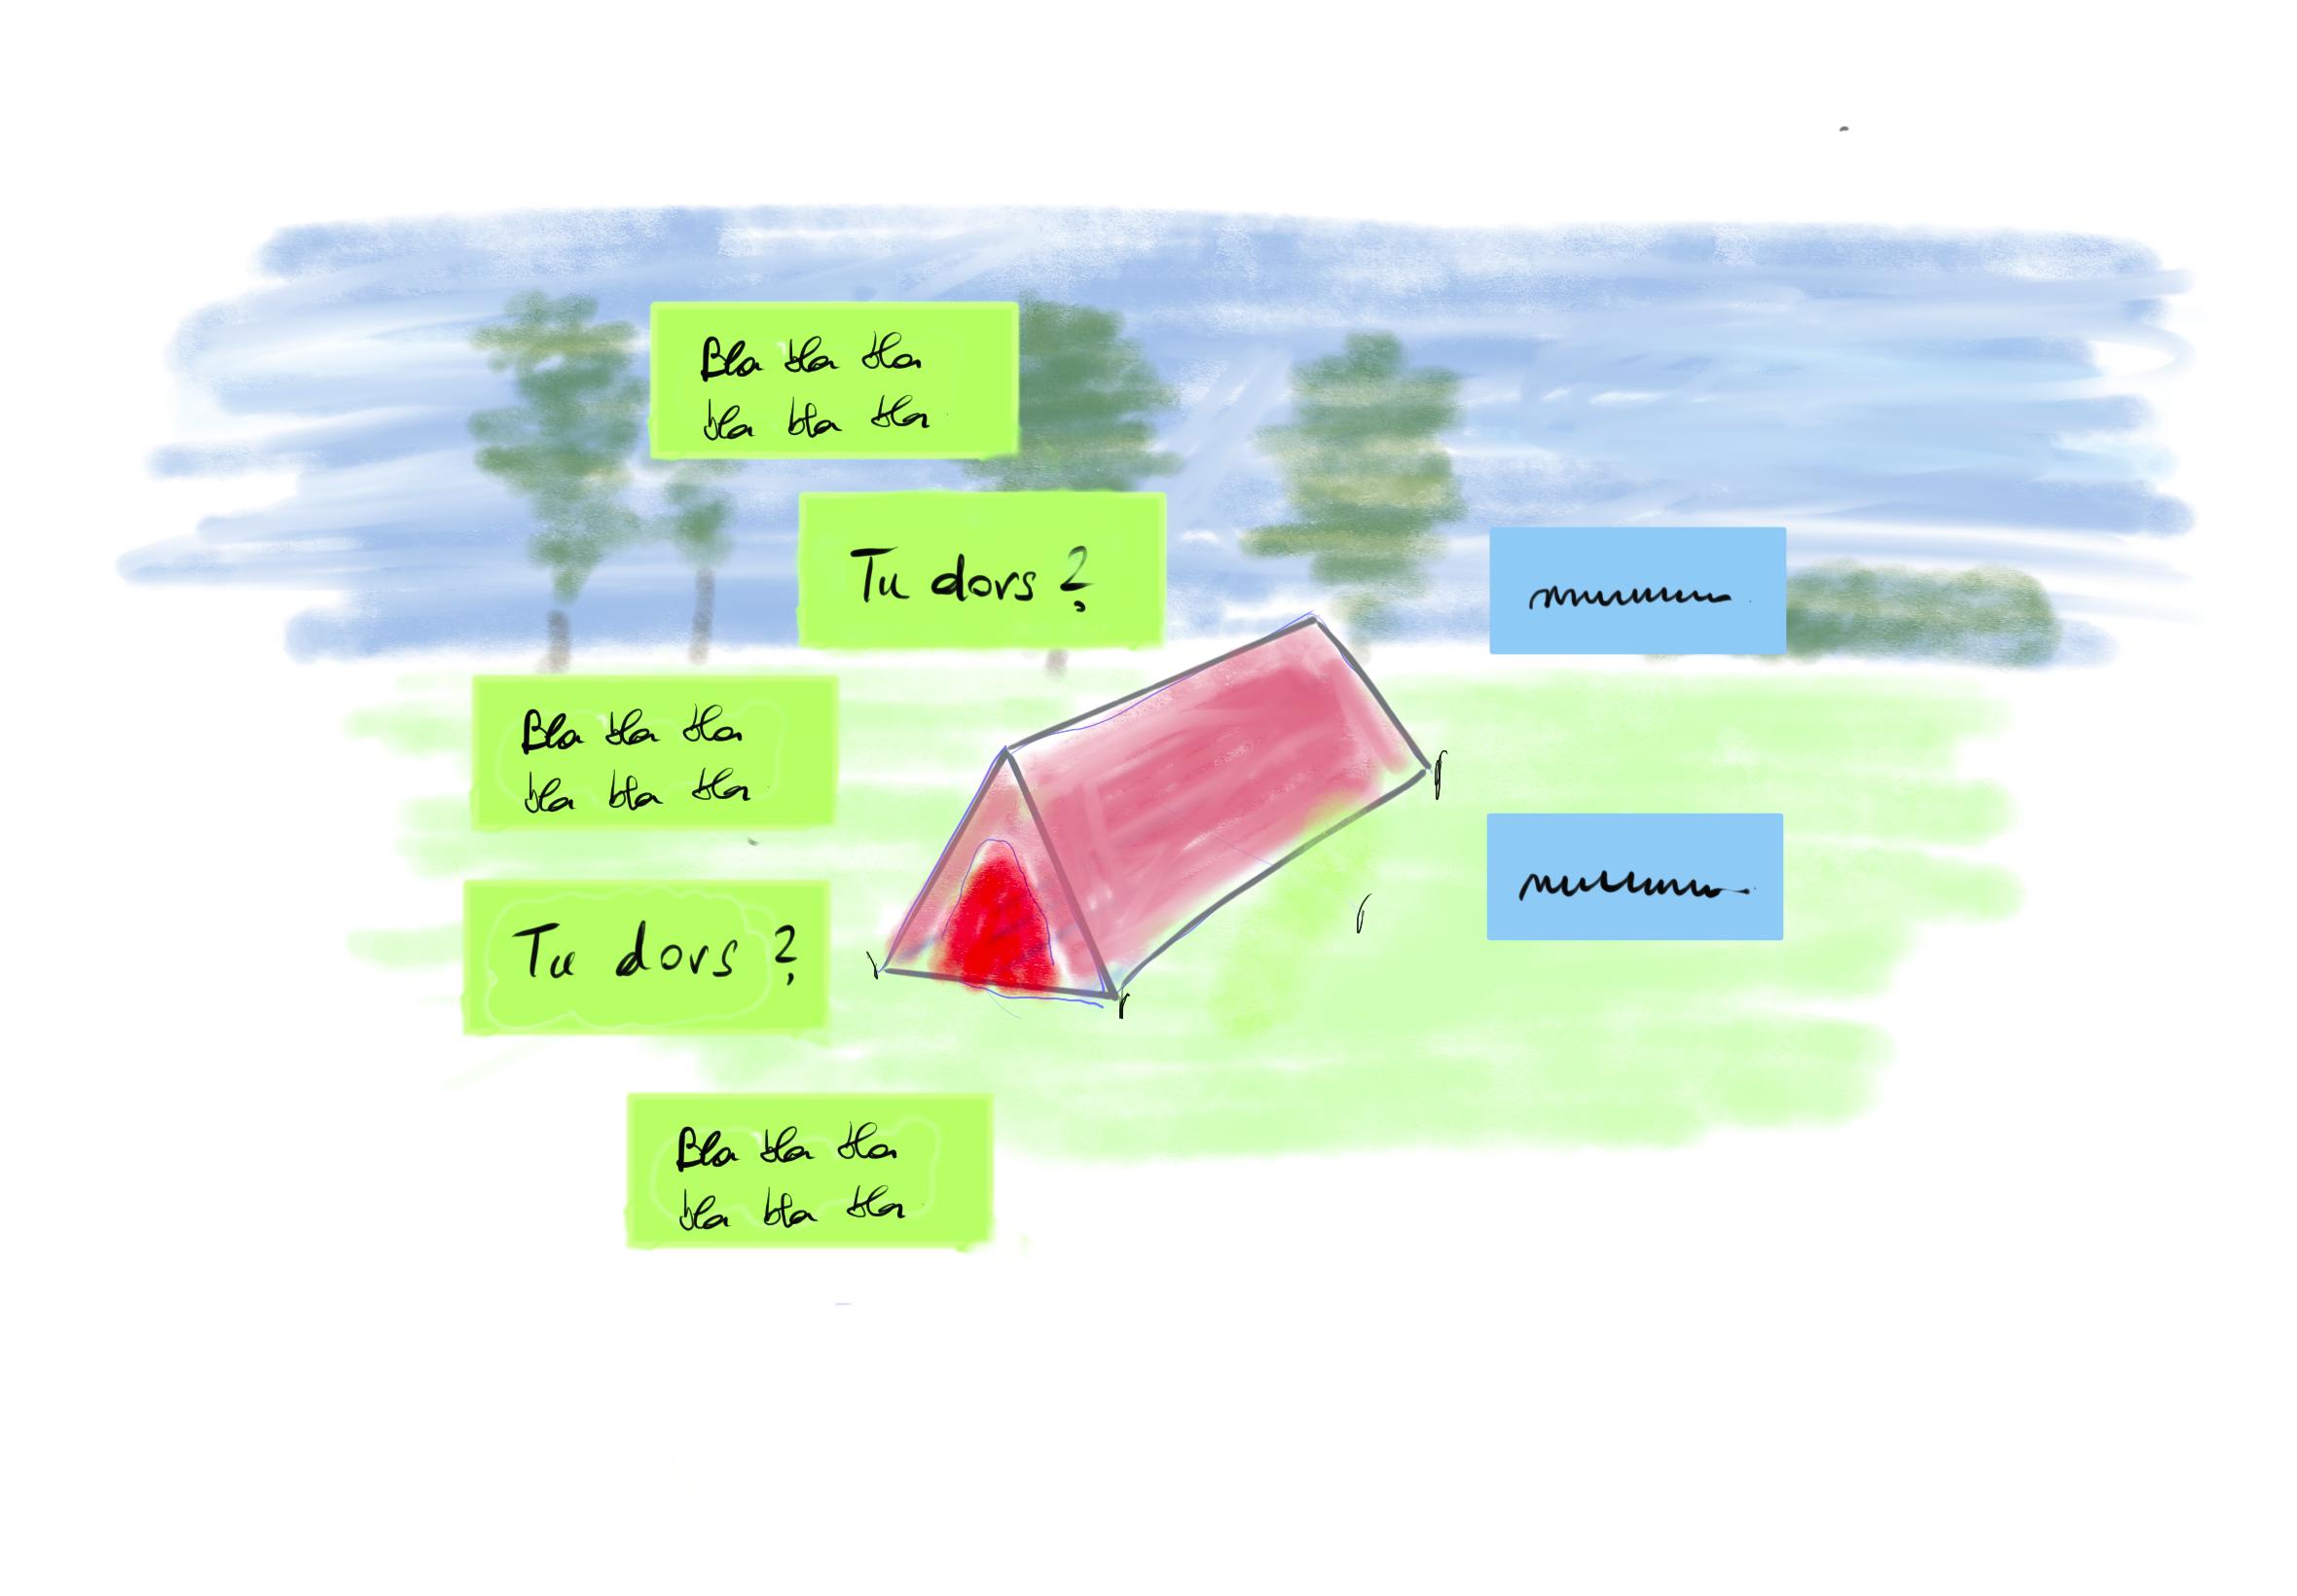 Bla bla bla
bla bla bla
Tu dors ?
Bla bla bla
bla bla bla
Tu dors ?
Bla bla bla
bla bla bla